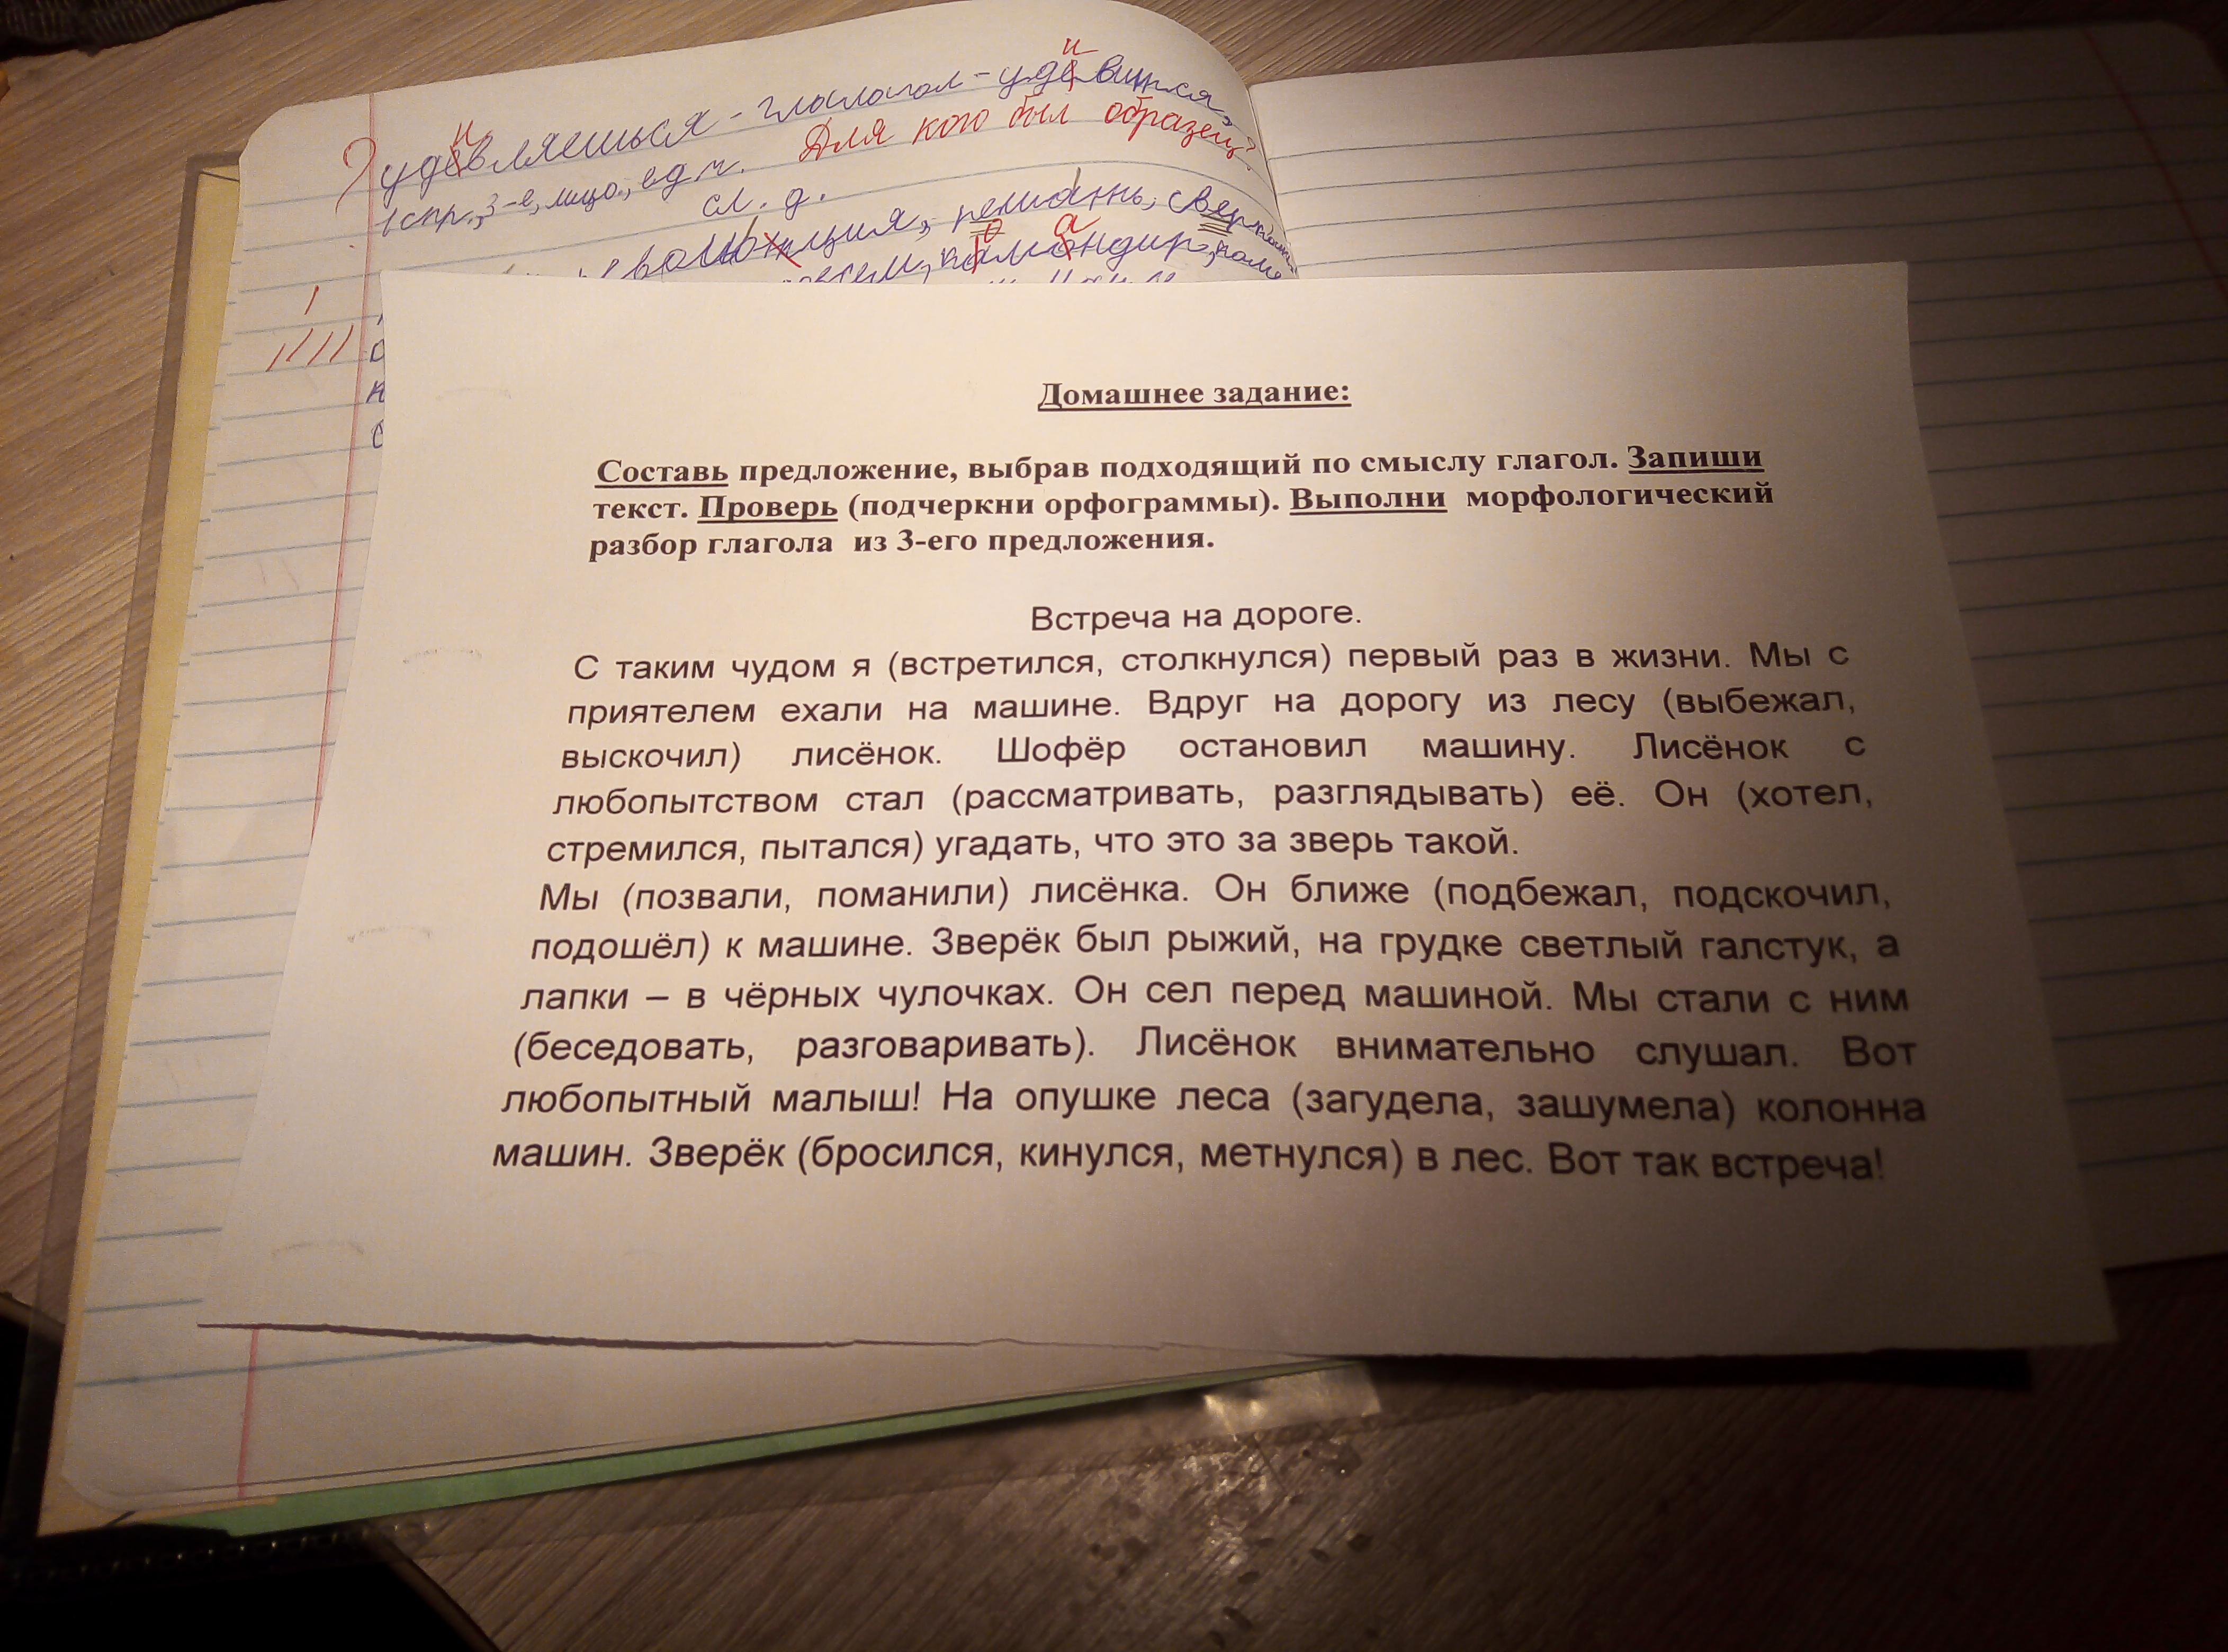 удевляешься - глалагол - удевится,
и и
1 спр., 3-е, лицо., ед. ч. Для кого был образец?
сл. д.
Домашнее задание:
Составь предложение, выбрав подходящий по смыслу глагол. Запиши
текст. Проверь (подчеркни орфограммы). Выполни морфологический
разбор глагола из 3-его предложения.
Встреча на дороге.
С таким чудом я (встретился, столкнулся) первый раз в жизни. Мы с
приятелем ехали на машине. Вдруг на дорогу из лесу (выбежал,
выскочил) лисёнок. Шофёр остановил машину. Лисёнок с
любопытством стал (рассматривать, разглядывать) её. Он (хотел,
стремился, пытался) угадать, что это за зверь такой.
Мы (позвали, поманили) лисёнка. Он ближе (подбежал, подскочил,
подошёл) к машине. Зверёк был рыжий, на грудке светлый галстук, а
лапки – в чёрных чулочках. Он сел перед машиной. Мы стали с ним
(беседовать, разговаривать). Лисёнок внимательно слушал. Вот
любопытный малыш! На опушке леса (загудела, зашумела) колонна
машин. Зверёк (бросился, кинулся, метнулся) в лес. Вот так встреча!